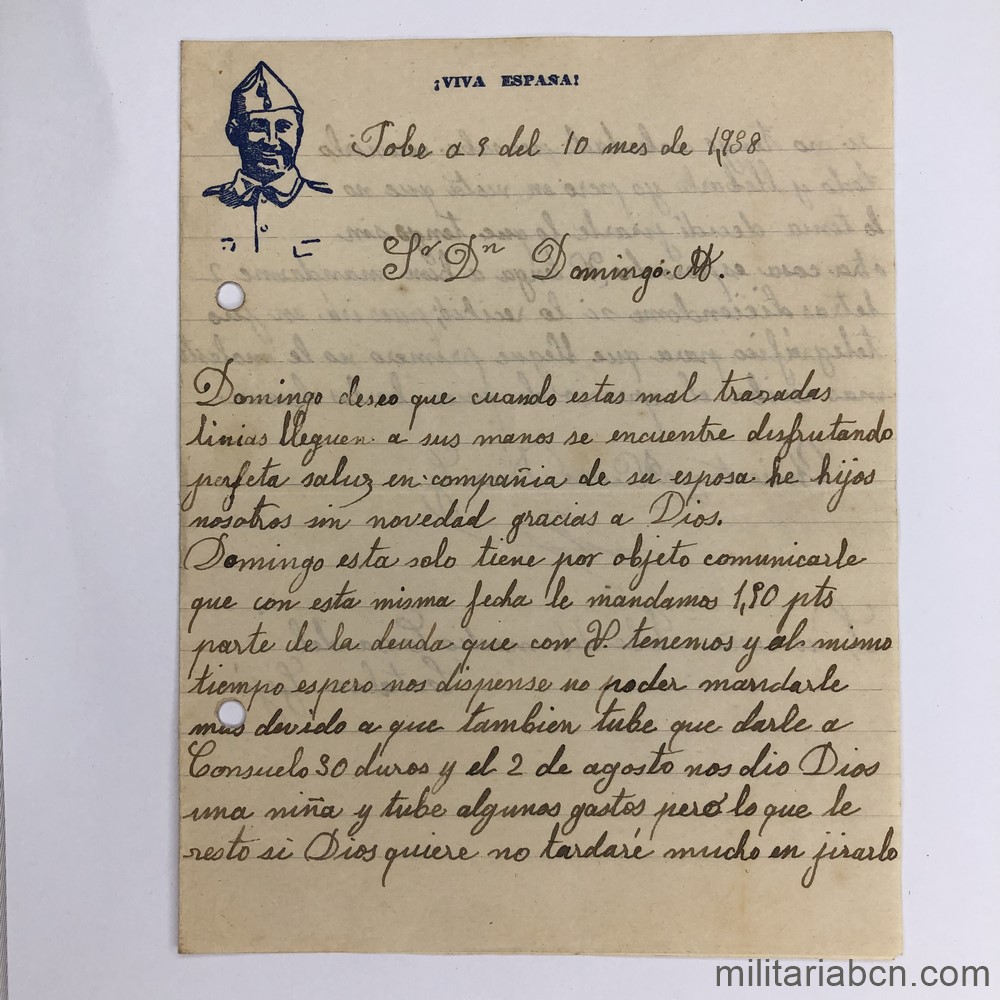 ¡VIVA ESPAÑA!
Tobe a 9 del 10 mes de 1,938
Sr Dn Domingo M.
Domingo deseo que cuando estas mal trazadas
linias lleguen a sus manos se encuentre disfrutando
perfeta saluz en compañia de su esposa he hijos
nosotros sin novedad gracias a Dios.
Domingo esta solo tiene por objeto comunicarle
que con esta misma fecha le mandamos 1,90 pts
parte de la deuda que con V. tenemos y al mismo
tiempo espero nos dispense no poder mandarle
mas devido a que tambien tube que darle a
Consuelo 30 duros y el 2 de agosto nos dio Dios
una niña y tube algunos gastos pero lo que le
resto si Dios quiere no tardaré mucho en jirarlo
militariabcn.com